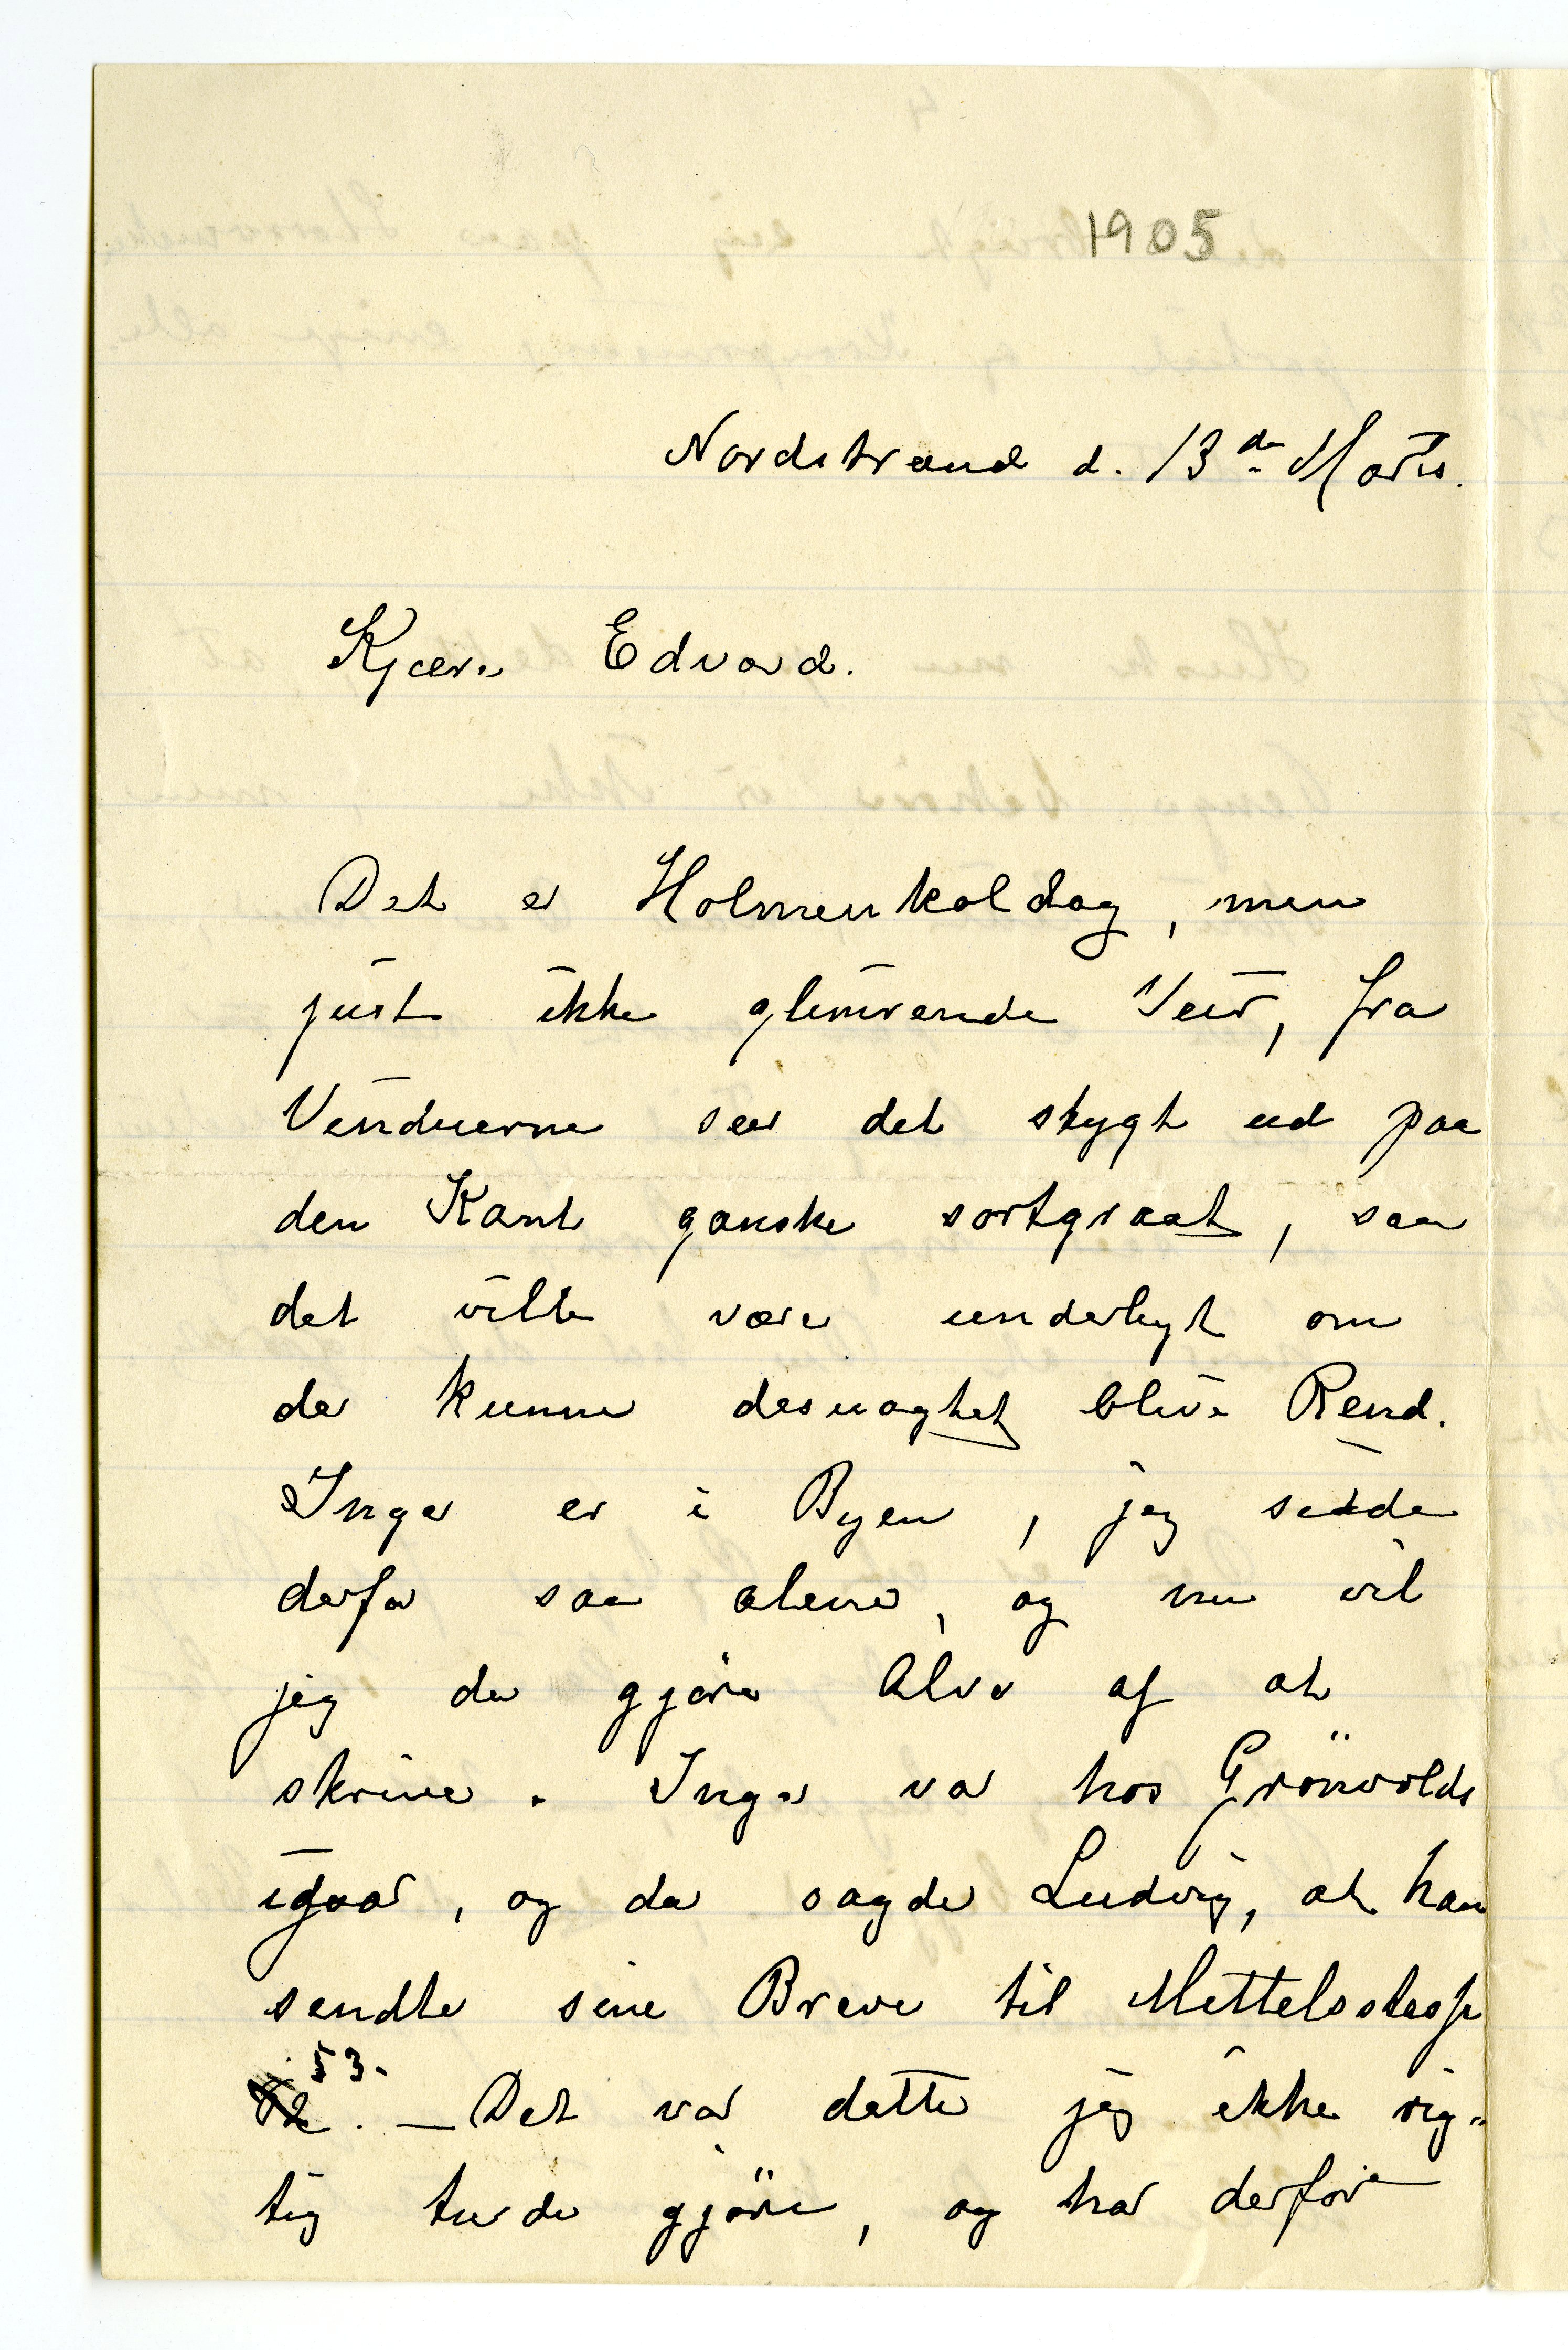 1905
Nordstrand d. 13de Marts.
Kjære Edvard.
Det er Holmenkoldag, men
just ikke glimrende Veir, fra
Vinduerne ser det stygt ud paa
den Kant ganske sortgraat, saa
det vilde være underligt om
der kunne desuagtet blive Rend.
Inger er i Byen, jeg sidder
derfor saa alene, og nu vil
jeg da gjøre Alvor af at
skrive. Inger var hos Grönvolds
igaar, og da sagde Ludvig, at han
sendte sine Breve til Mittelsstrasse
53.
82. — Det var dette jeg ikke rig-
tig turde gjöre, og har derfor